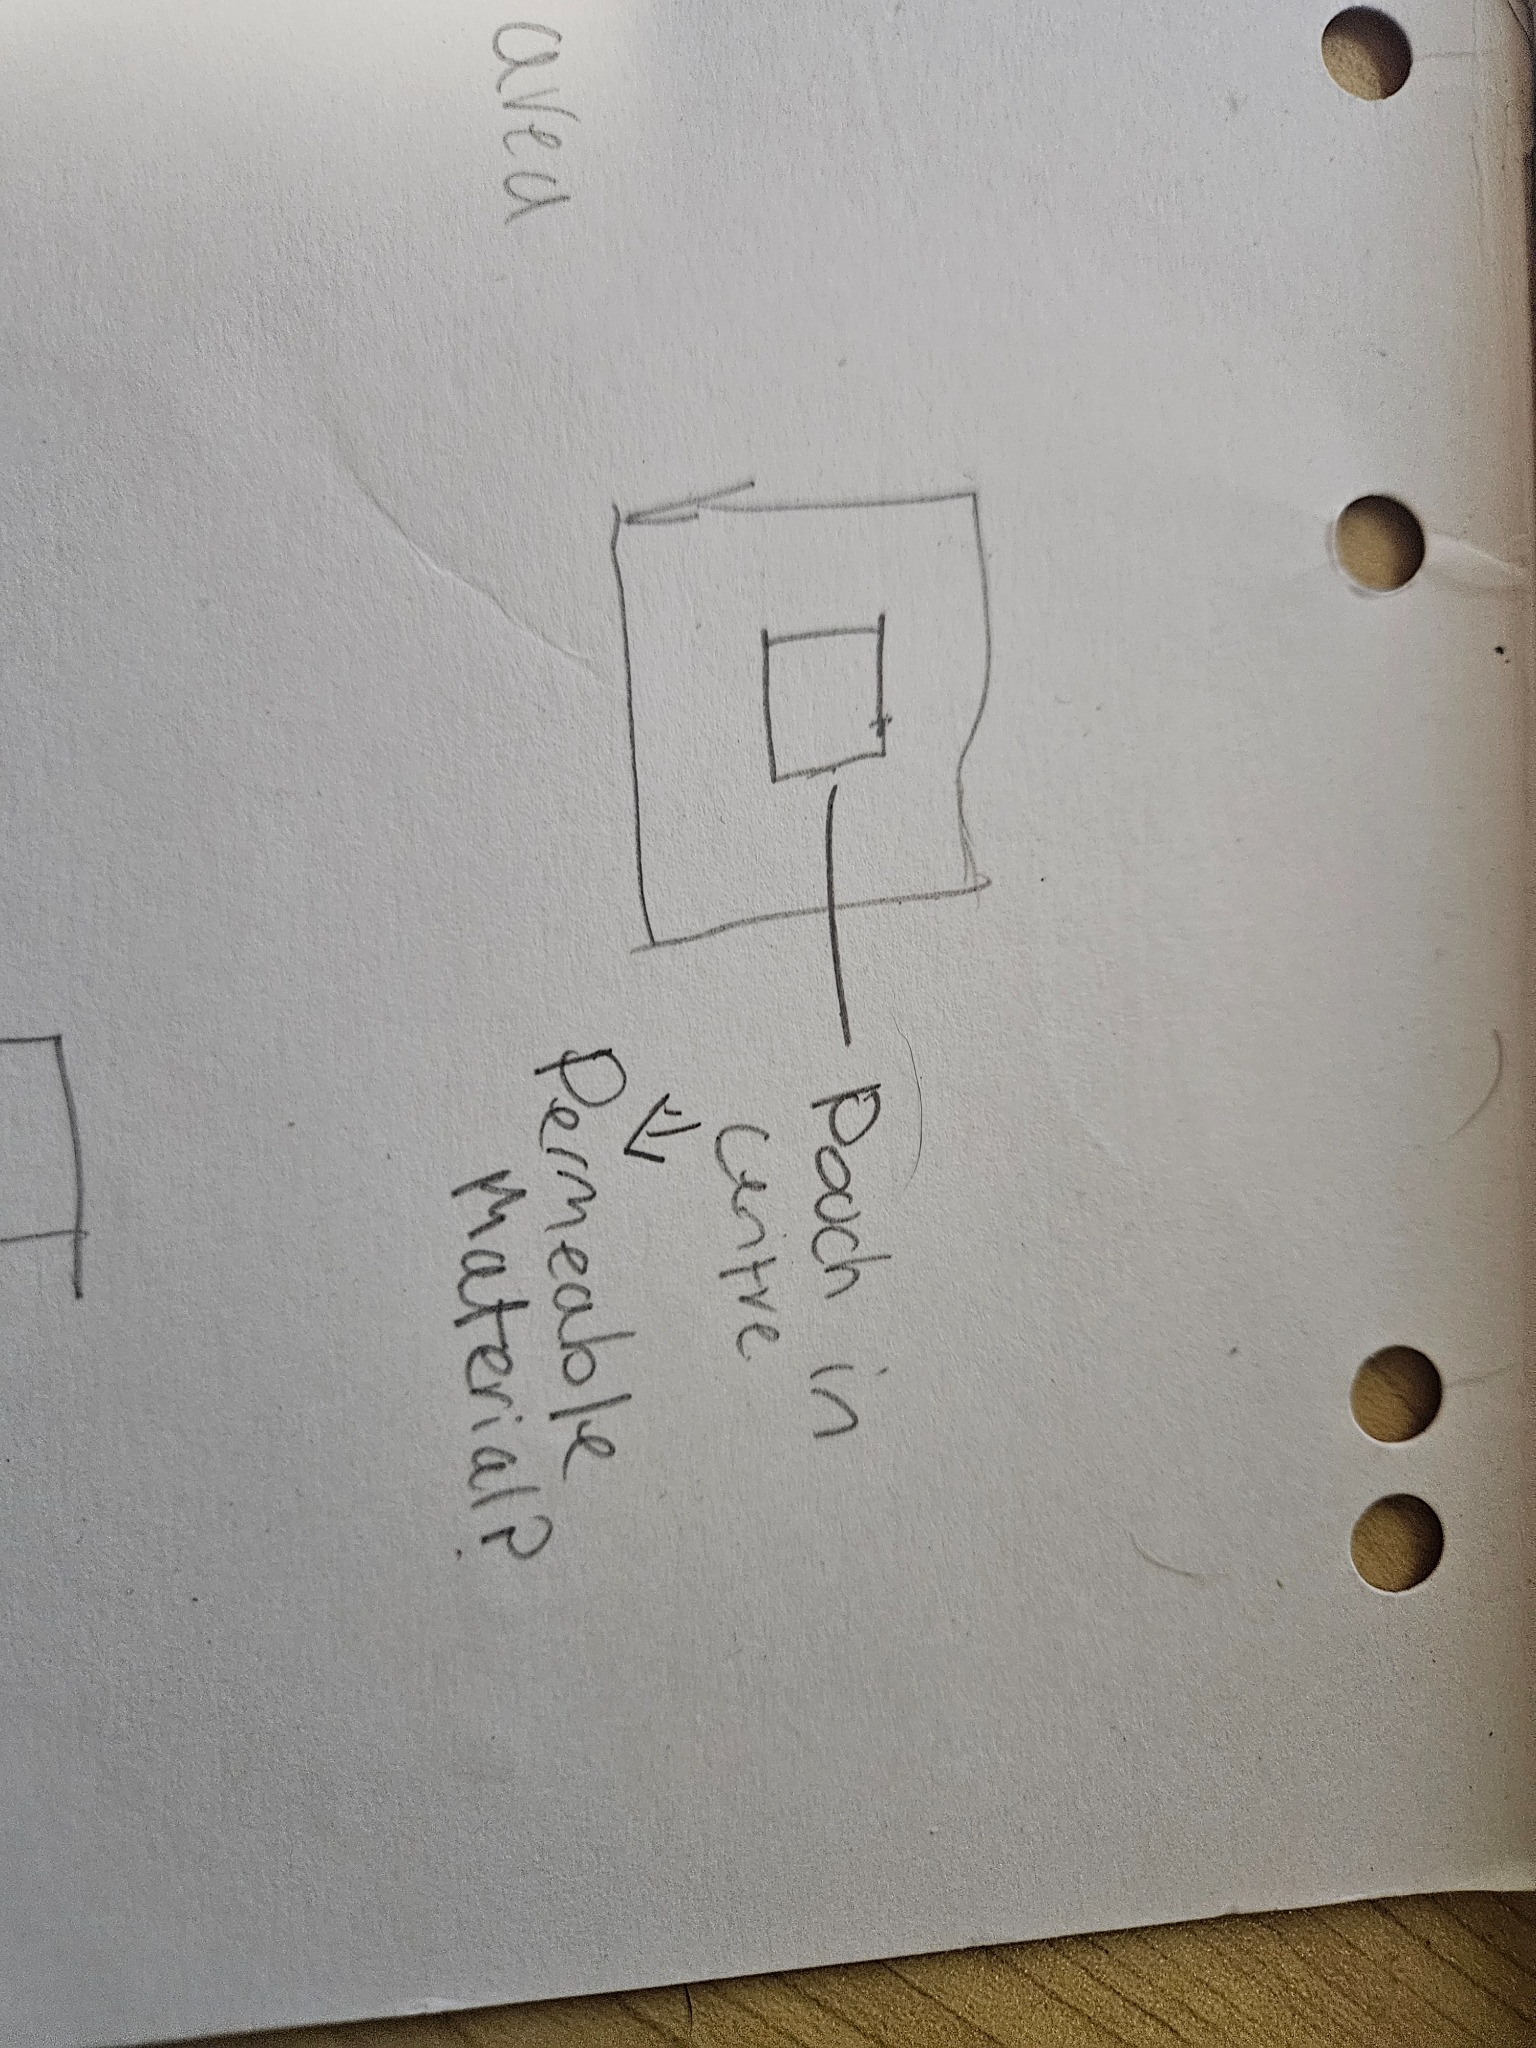 Pouch in
centre
Permeable
Material?
area